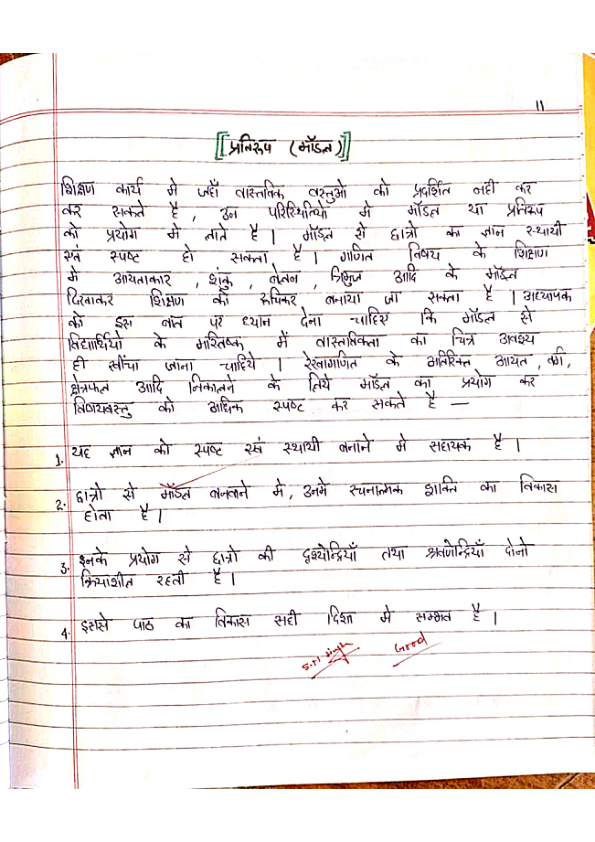 11
[[ प्रतिरूप (मॉडल) ]]
शिक्षण कार्य मे जहाँ वास्तविक वस्तुओ को प्रदर्शित नही कर
कर सकते है , उन परिस्थित्यो मे मॉडल या प्रतिरूप
को प्रयोग मे लाते है । मॉडल से छात्रो का ज्ञान स्थायी
एवं स्पष्ट हो सकता है । गणित विषय के शिक्षण
मे आयताकार , शंकु , बेलन , त्रिभुज आदि के मॉडल
दिखाकर शिक्षण को रुचिकर बनाया जा सकता है । अध्यापक
को इस बात पर ध्यान देना चाहिए कि मॉडल से
विद्यार्थियो के मस्तिष्क में वास्तविकता का चित्र अवश्य
ही खींचा जाना चाहिये । रेखागणित के अतिरिक्त आयत , वर्ग ,
क्षेत्रफल आदि निकालने के लिये मॉडल का प्रयोग कर
विषयवस्तु को अधिक स्पष्ट कर सकते है —
1. यह ज्ञान को स्पष्ट एवं स्थायी बनाने मे सहायक है ।
2. छात्रो से मॉडल बनवाने मे , उनमे रचनात्मक शक्ति का विकास
होता है ।
3. इनके प्रयोग से छात्रो की दृश्येन्द्रियाँ तथा श्रवणेन्द्रियाँ दोनो
क्रियाशील रहती है ।
4. इससे पाठ का विकास सही दिशा मे सम्भव है ।
Good